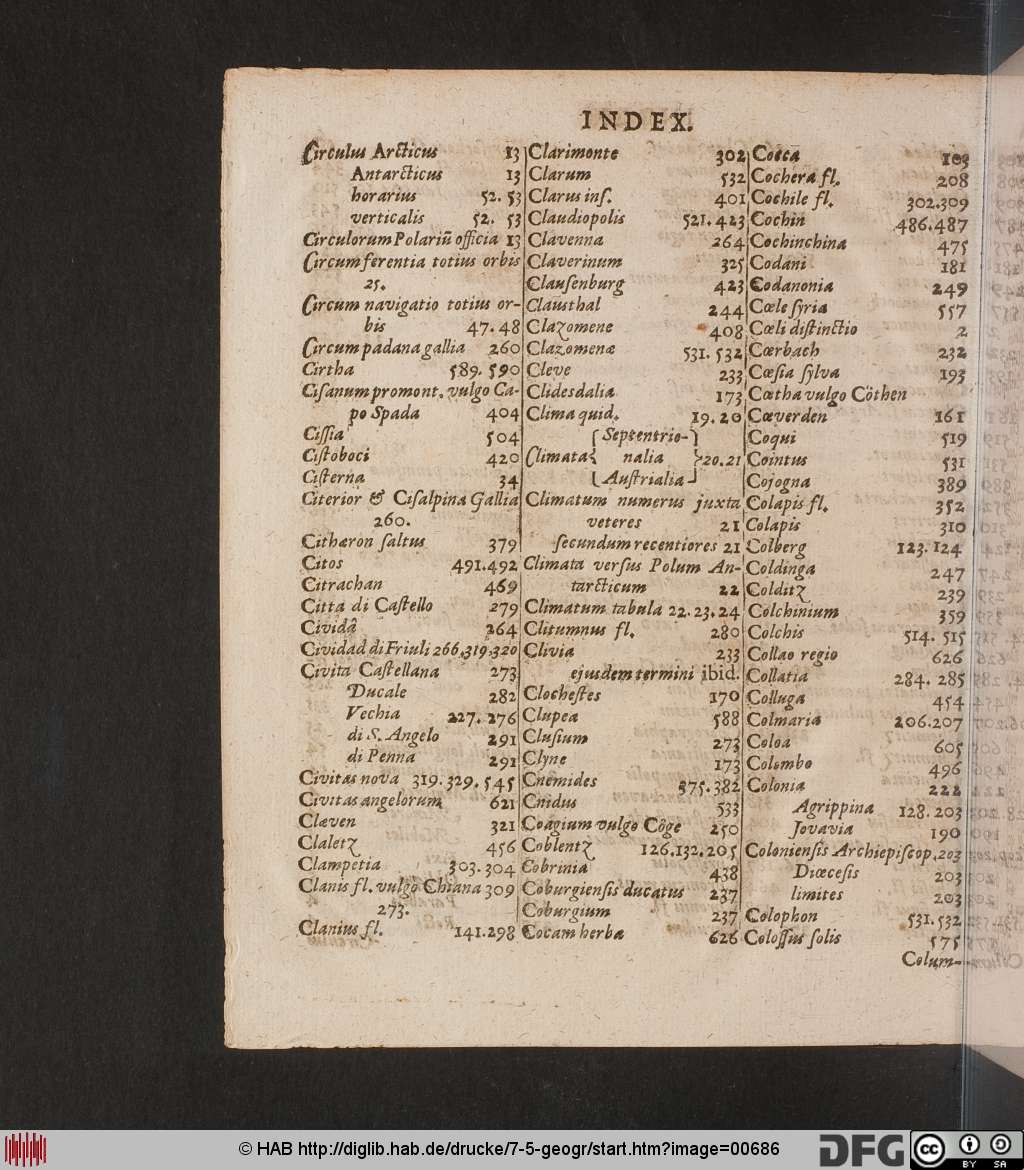 INDEX.
Circulus Arcticus 13
Antarcticus 13
horarius 52. 53
verticalis 52. 53
Circulorum Polariū officia 13
Circumferentia totius orbis
25.
Circum navigatio totius or-
bis 47. 48
Circumpadana gallia 260
Cirtha 589. 590
Cisanum promont. vulgo Ca-
po Spada 404
Cissia 504
Cistoboci 420
Cisterna 34
Citerior & Cisalpina Gallia
260.
Cithæron saltus 379
Citos 491.492
Citrachan 469
Citta di Castello 279
Cividâ 264
Cividad di Friuli 266.319.320
Civita Castellana 273
Ducale 282
Vechia 227. 276
di S. Angelo 291
di Penna 291
Civitas nova 319.329.545
Civitas angelorum 621
Clæven 321
Claletz 456
Clampetia 303.304
Clanis fl. vulgo Chiana 309
273.
Clanius fl. 141.298
Clarimonte 302
Clarum 532
Clarus ins. 401
Claudiopolis 521.423
Clavenna 264
Claverinum 325
Clausenburg 423
Clausthal 244
Clazomene 408
Clazomenæ 531. 532
Cleve 233
Clidesdalia 173
Clima quid. 19.20
Septentrio-
Climata nalia 20.21
Australia
Climatum numerus juxta
veteres 21
secundum recentiores 21
Climata versus Polum An-
tarcticum 22
Climatum tabula 22.23.24
Clitumnus fl. 280
Clivia 233
ejusdem termini ibid.
Clochestes 170
Clupea 588
Clusium 273
Clyne 173
Cnemides 375.382
Cnidus 533
Coagium vulgo Côge 250
Coblentz 126.132.205
Cobrinia 438
Coburgiensis ducatus 237
Coburgium 237
Cocam herba 626
Cocca
Cochera fl. 208
Cochile fl. 302.309
Cochin 486.487
Cochinchina 475
Codani 181
Codanonia 249
Cœle syria 557
Cœli distinctio 2
Cœrbach 232
Cœsia sylva 193
Cœtha vulgo Cöthen
Cœverden 161
Coqui 519
Cointus 531
Cojogna 389
Colapis fl. 352
Colapis 310
Colberg 123.124
Coldinga 247
Colditz 239
Colchinium 359
Colchis 514. 515
Collao regio 626
Collatia 284. 285
Colluga 454
Colmaria 206.207
Coloa 605
Colombo 496
Colonia 222
Agrippina 128.203
Jovavia 190
Coloniensis Archiepiscop. 203
Diœcesis 203
limites 203
Colophon 531.532
Colossius solis 575
Colum-
© HAB http://diglib.hab.de/drucke/7-5-geogr/start.htm?image=00686
DFG
cc
BY SA